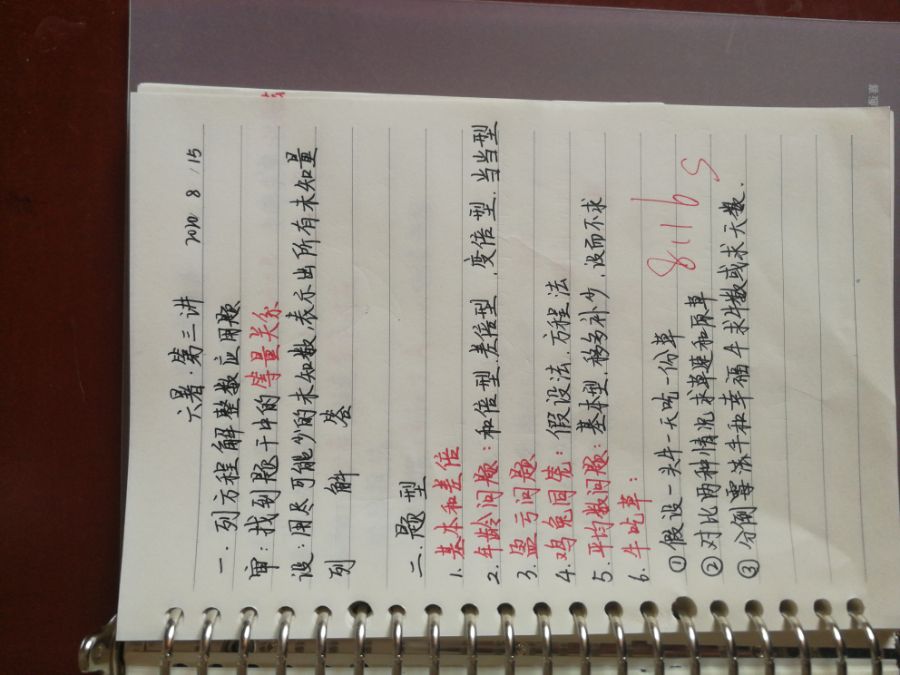 六暑·第三讲 2020 8/15
一.列方程解整数应用题
审:找到题干中的等量关系
设:用尽可能少的未知数,表示出所有未知量
列 解 答
二.题型
1.基本和差倍
2.年龄问题:和倍型.差倍型.变倍型.当当型
3.盈亏问题
4.鸡兔同笼:假设法.方程法
5.平均数问题:基本型.移多补少.设而不求
6.牛吃草:
①假设一头牛一天吃一份草
②对比两种情况求草速和原草
③分倒霉落牛和幸福牛求牛数或求天数.